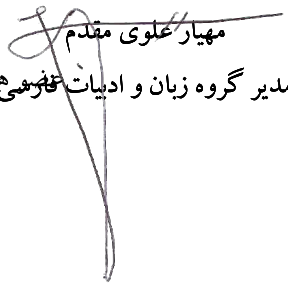 مهیار علوی مقدم
مدیر گروه زبان و ادبیات فارسی